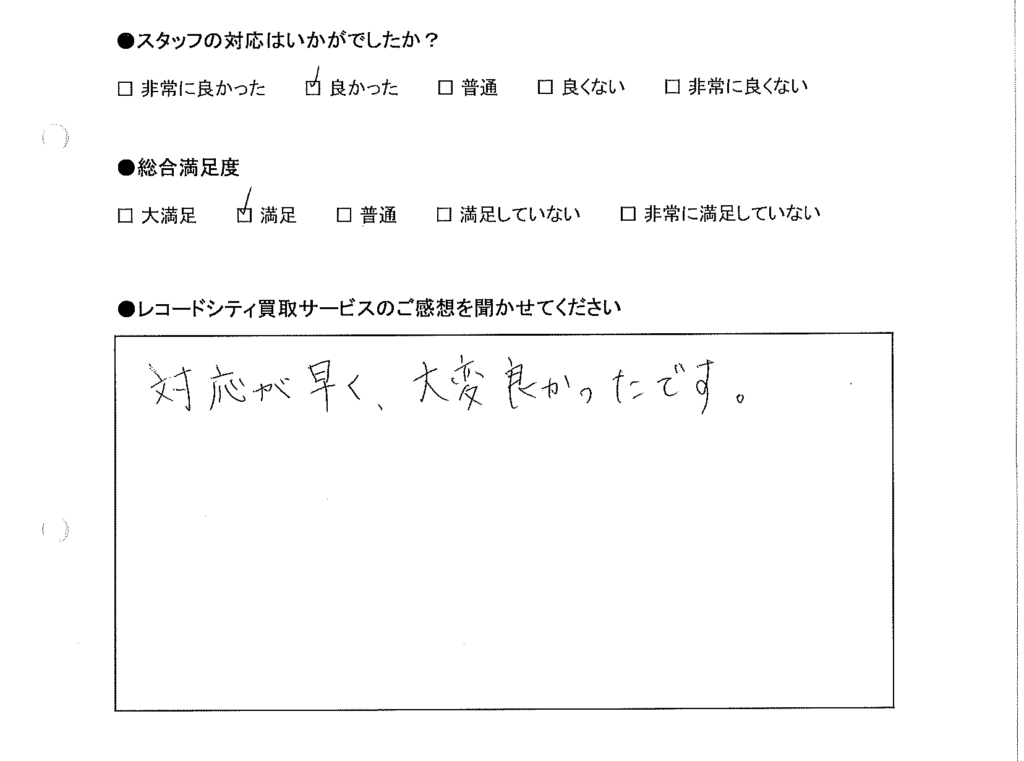 ●スタッフの対応はいかがでしたか？
□ 非常に良かった ☑ 良かった □ 普通 □ 良くない □ 非常に良くない
●総合満足度
□ 大満足 ☑ 満足 □ 普通 □ 満足していない □ 非常に満足していない
●レコードシティ買取サービスのご感想を聞かせてください
対応が早く、大変良かったです。